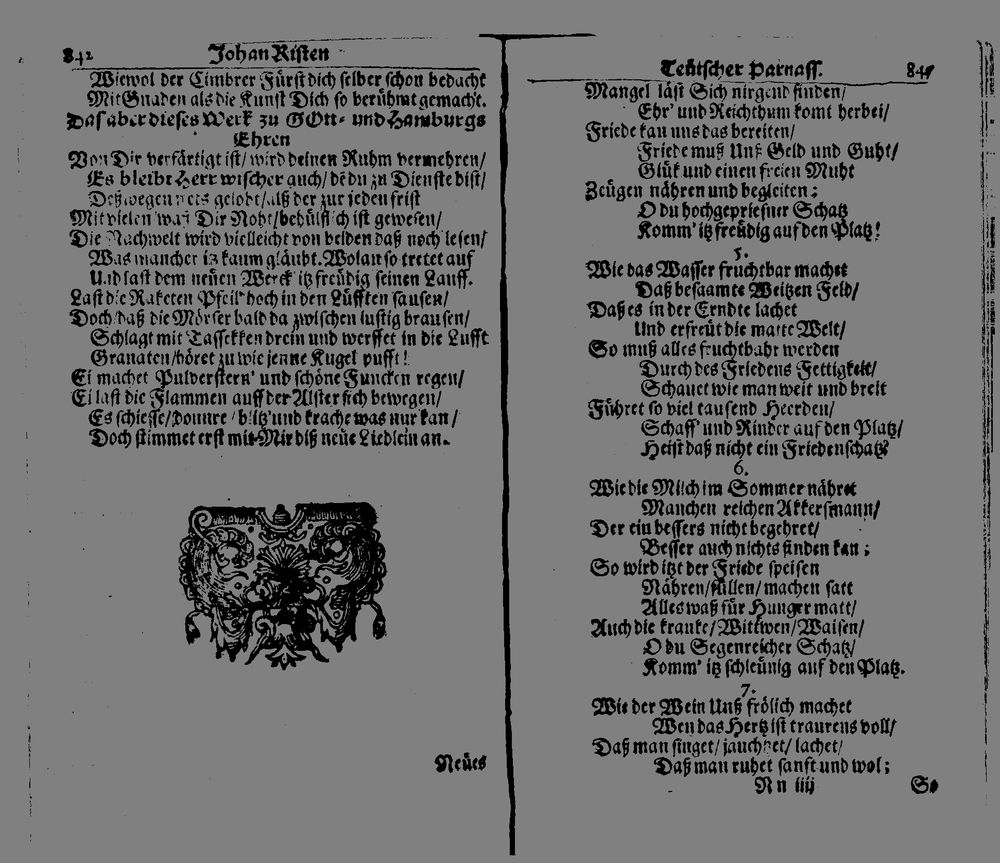 842 Johan Risten
Wiewol der Cimbrer Fürst dich selber schon bedacht
Mit Gnaden als die Kunst Dich so berühmt gemacht.
Das aber dieses Werk zu GOtt- und Hamburgs
Ehren
Von Dir verfärtigt ist/ wird deinen Ruhm vermehren/
Es bleibt Herrwischer auch/ dē du zu Dienste bist/
Deßwegen stets gelobt/ alß der zur jeden frist
Mit vielen waß Dir Noht/ behülflich ist gewesen/
Die Nachwelt wird vielleicht von beiden daß noch lesen/
Was mancher itz kaum gläubt. Wolan so tretet auf
Und last dem neüen Werck' itz freüdig seinen Lauff.
Last die Raketen Pfeil' hoch in den Lüfften sausen/
Doch/ daß die Mörser bald da zwischen lustig brausen/
Schlagt mit Tassekken drein und werffet in die Lufft
Granaten/ höret zu wie jenne Kugel pufft!
Ei machet Pulverstern' und schöne Funcken regen/
Ei last die Flammen auff der Alster sich bewegen/
Es schiesse/ donnre/ blitz' und krache was nur kan/
Doch stimmet erst mit Mir diß neüe Liedlein an.
Neües
Teütscher Parnass. 847
Mangel läst Sich nirgend finden/
Ehr' und Reichthum komt herbei/
Friede kan uns das bereiten/
Friede muß Unß Geld und Guht/
Glük und einen freien Muht
Zeügen nähren und begleiten;
O du hochgepriesner Schatz
Komm' itz freüdig auf den Platz!
5.
Wie das Wasser fruchtbar machet
Daß besaamte Weitzen Feld/
Daß es in der Erndte lachet
Und erfreüt die matte Welt/
So muß alles fruchtbahr werden
Durch des Friedens Fettigkeit/
Schauet wie man weit und breit
Führet so viel tausend Heerden/
Schaff' und Rinder auf den Platz/
Heist daß nicht ein Friedenschatz?
6.
Wie die Milch im Sommer nähret
Manchen reichen Akkersmann/
Der ein bessers nicht begehret/
Besser auch nichts finden kan;
So wird itzt der Friede speisen
Nähren/ füllen/ machen satt
Alles waß für Hunger matt/
Auch die kranke/ Wittwen/ Waisen/
O du Segenreicher Schatz/
Komm' itz schleünig auf den Platz.
7.
Wie der Wein Unß frölich machet
Wen das Hertz ist traurens voll/
Daß man singet/ jauchzet/ lachet/
Daß man ruhet sanft und wol;
Nn iiij So